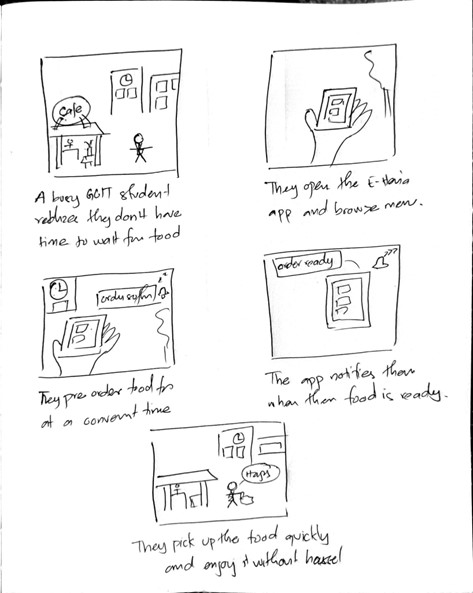 Cafe
A busy GCIT student
realizes they don't have
time to wait for food
They open the E-
app and browse menu.
order
They pre order food for
at a convenient time
order ready
The app notifies them
when their food is ready.
Happy
They pick up the food quickly
and enjoy it without hassel